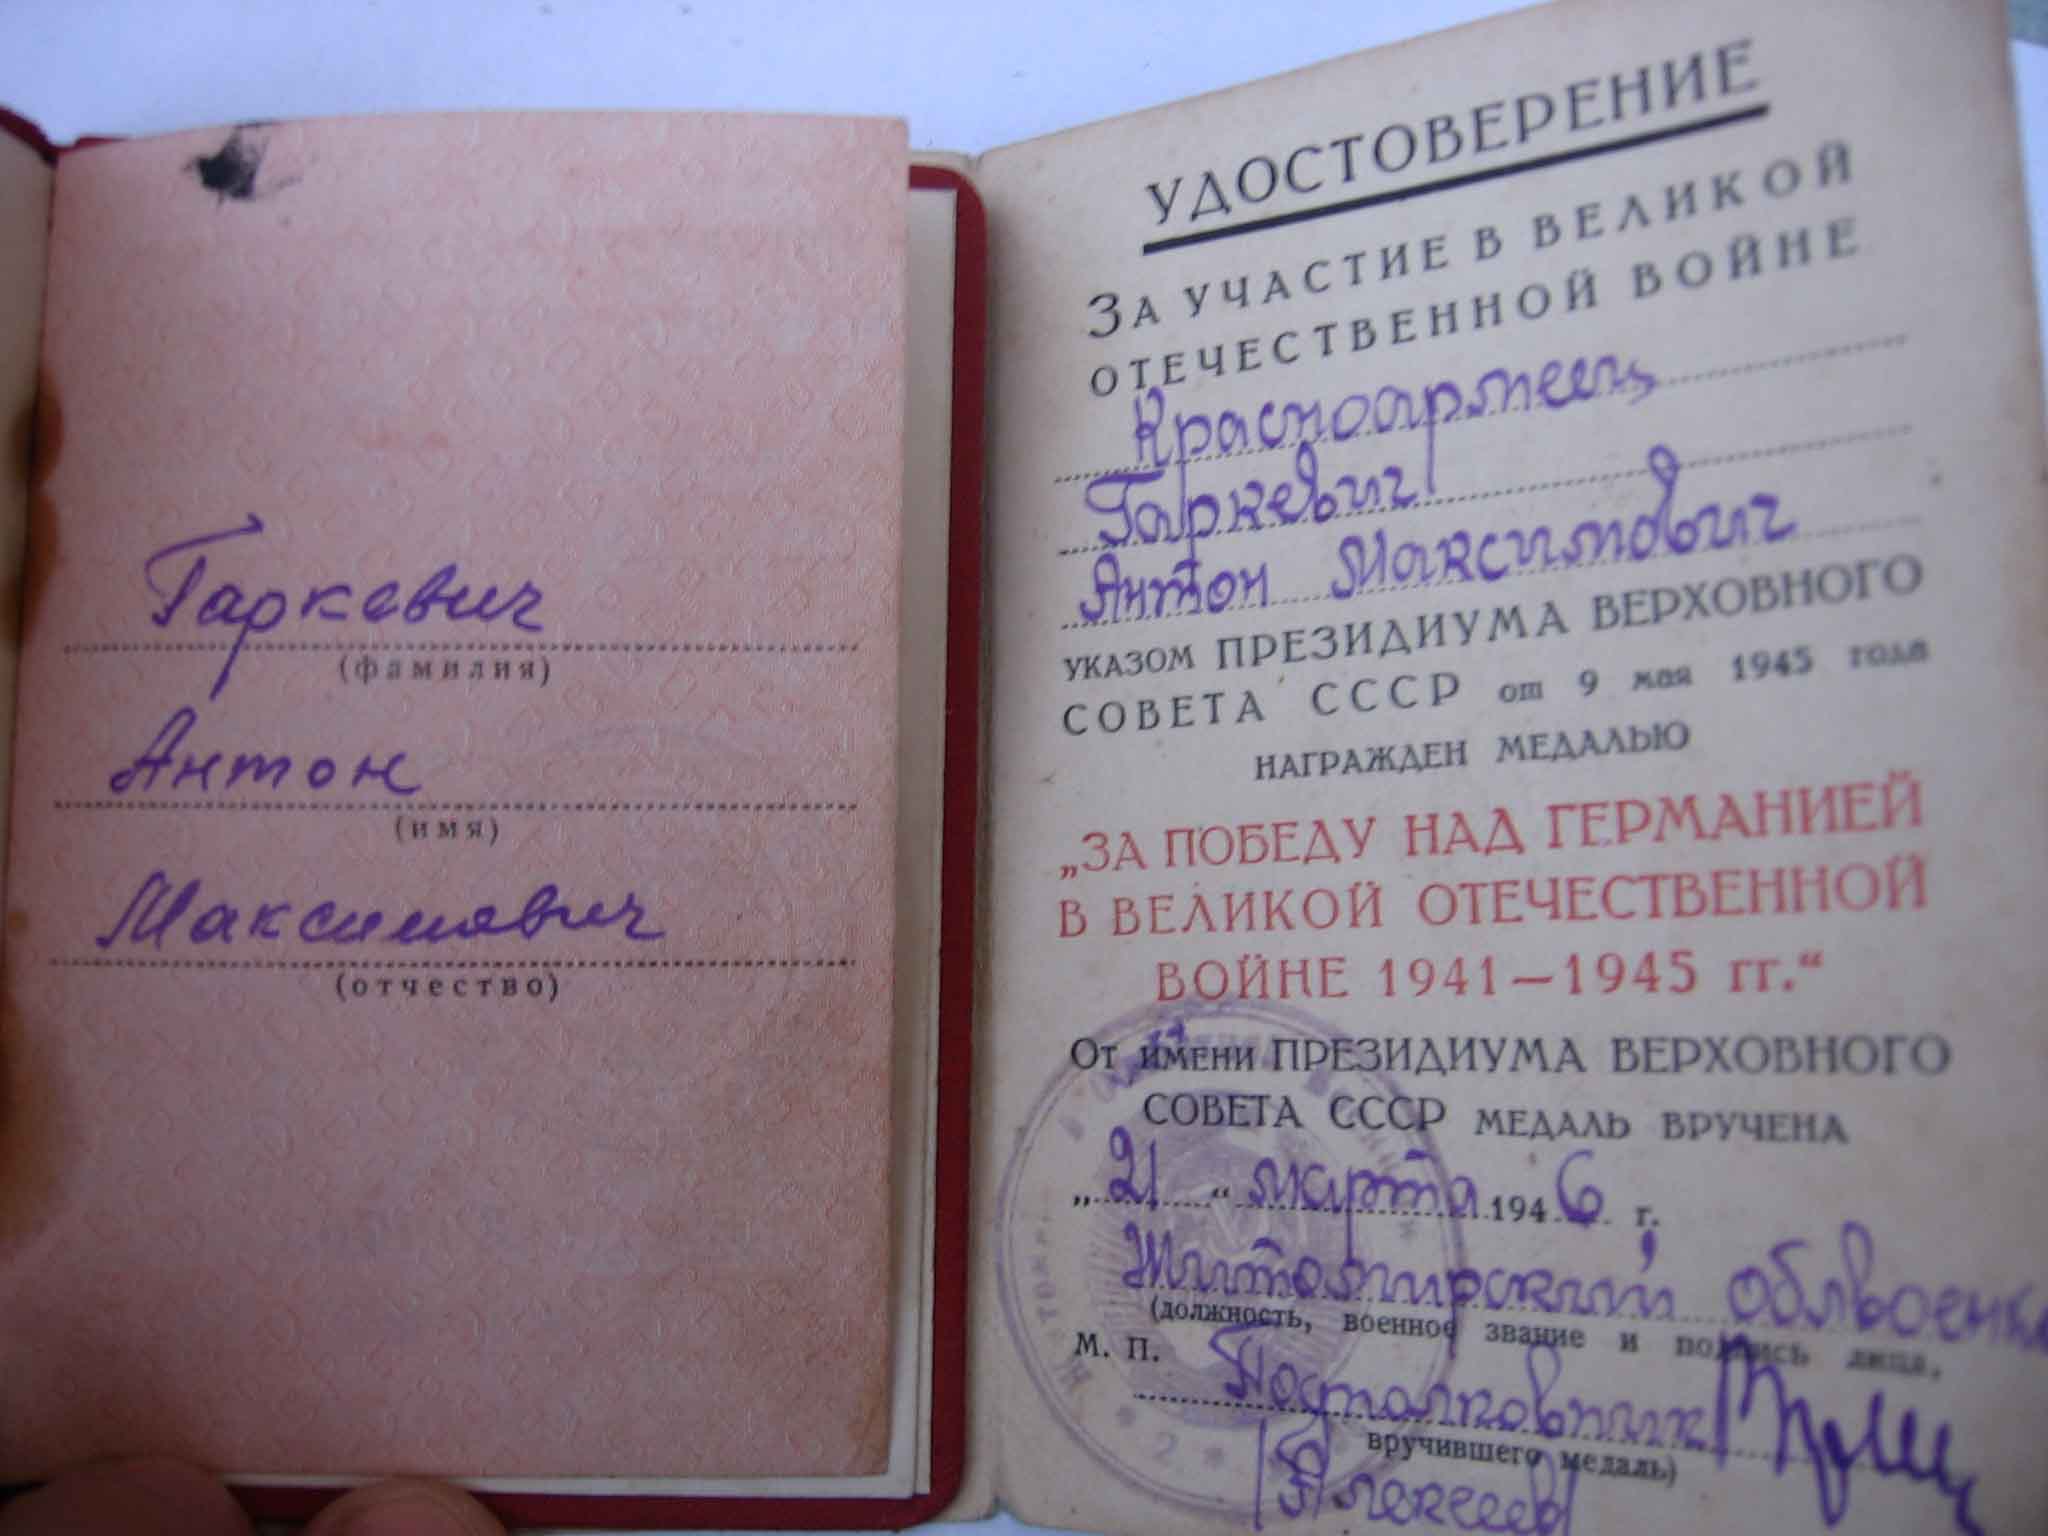 Гаркевич
(фамилия)
Антон
(имя)
Максимович
(отчество)
УДОСТОВЕРЕНИЕ
ЗА УЧАСТИЕ В ВЕЛИКОЙ
ОТЕЧЕСТВЕННОЙ ВОЙНЕ
Красноармеец
Гаркевич
Антон Максимович
УКАЗОМ ПРЕЗИДИУМА ВЕРХОВНОГО
СОВЕТА СССР от 9 мая 1945 года
НАГРАЖДЕН МЕДАЛЬЮ
„ЗА ПОБЕДУ НАД ГЕРМАНИЕЙ
В ВЕЛИКОЙ ОТЕЧЕСТВЕННОЙ
ВОЙНЕ 1941—1945 гг.“
От имени ПРЕЗИДИУМА ВЕРХОВНОГО
СОВЕТА СССР МЕДАЛЬ ВРУЧЕНА
„21“ марта 1946 г.
Житомирский облвоенк
(должность, военное звание и подпись лица,
М. П.
вручившего медаль)
Алексеев